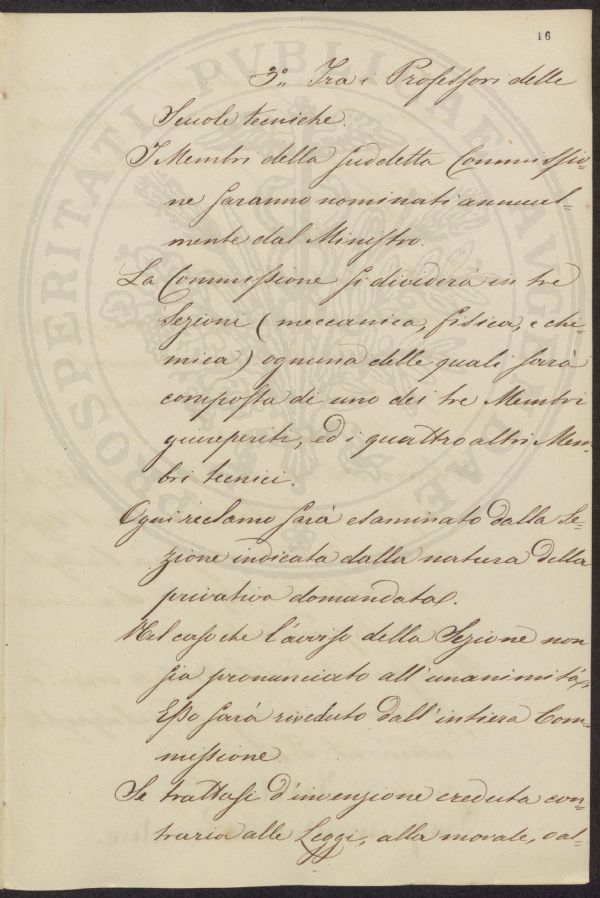 16
3.° Tra i Professori delle
Scuole tecniche.
I Membri della suddetta Commissio-
ne saranno nominati annual-
mente dal Ministro.
La Commissione si dividerà in tre
Sezioni (meccanica, fisica, e chi-
mica) ognuna delle quali sarà
composta di uno dei tre Membri
giureperiti, ed i quattro altri Mem-
bri tecnici.
Ogni reclamo sarà esaminato dalla Se-
zione indicata dalla natura della
privativa domandata.
Nel caso che l'avviso della Sezione non
sia pronunciato all'unanimità,
Esso sarà riveduto dall'intiera Com-
missione.
Se trattasi d'invenzione creduta con-
traria alle Leggi, alla morale, o al-
PROSPERITATI PVBLICAE AVGENDAE